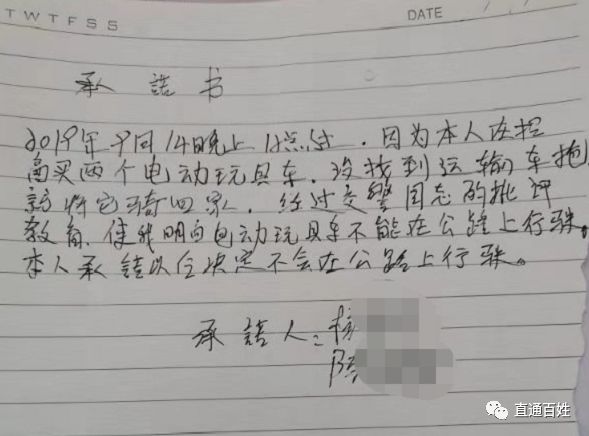 TWTFSS
DATE
承诺书
2019年9月14日晚上12点过，因为本人在
高买两个电动玩具车，没找到运输车拖
就将它骑回家，经过交警同志的批评
教育、使我明白电动玩具车不能在公路上行驶。
本人承诺以后决定不会在公路上行驶。
承诺人：杨
陈
直通百姓